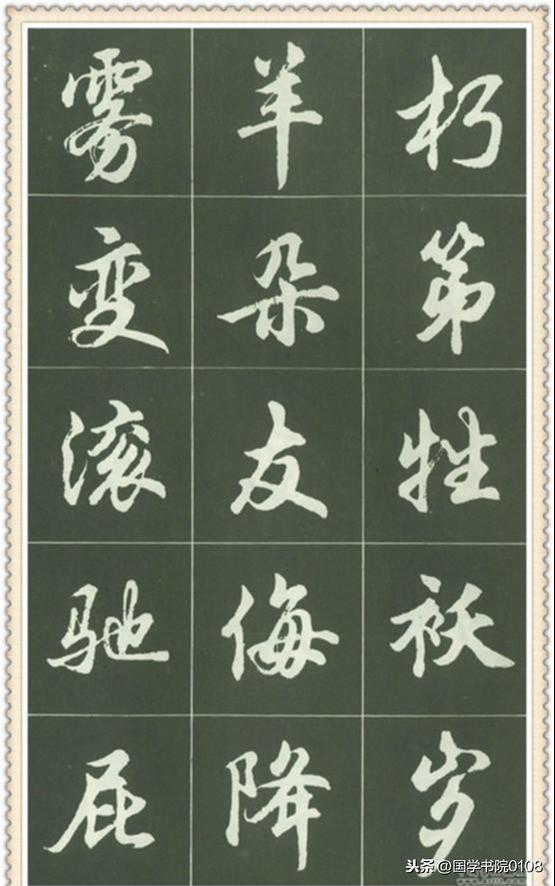 朽第牲袄岁
羊朵友侮降
雾变滚驰屁
头条 @国学书院0108